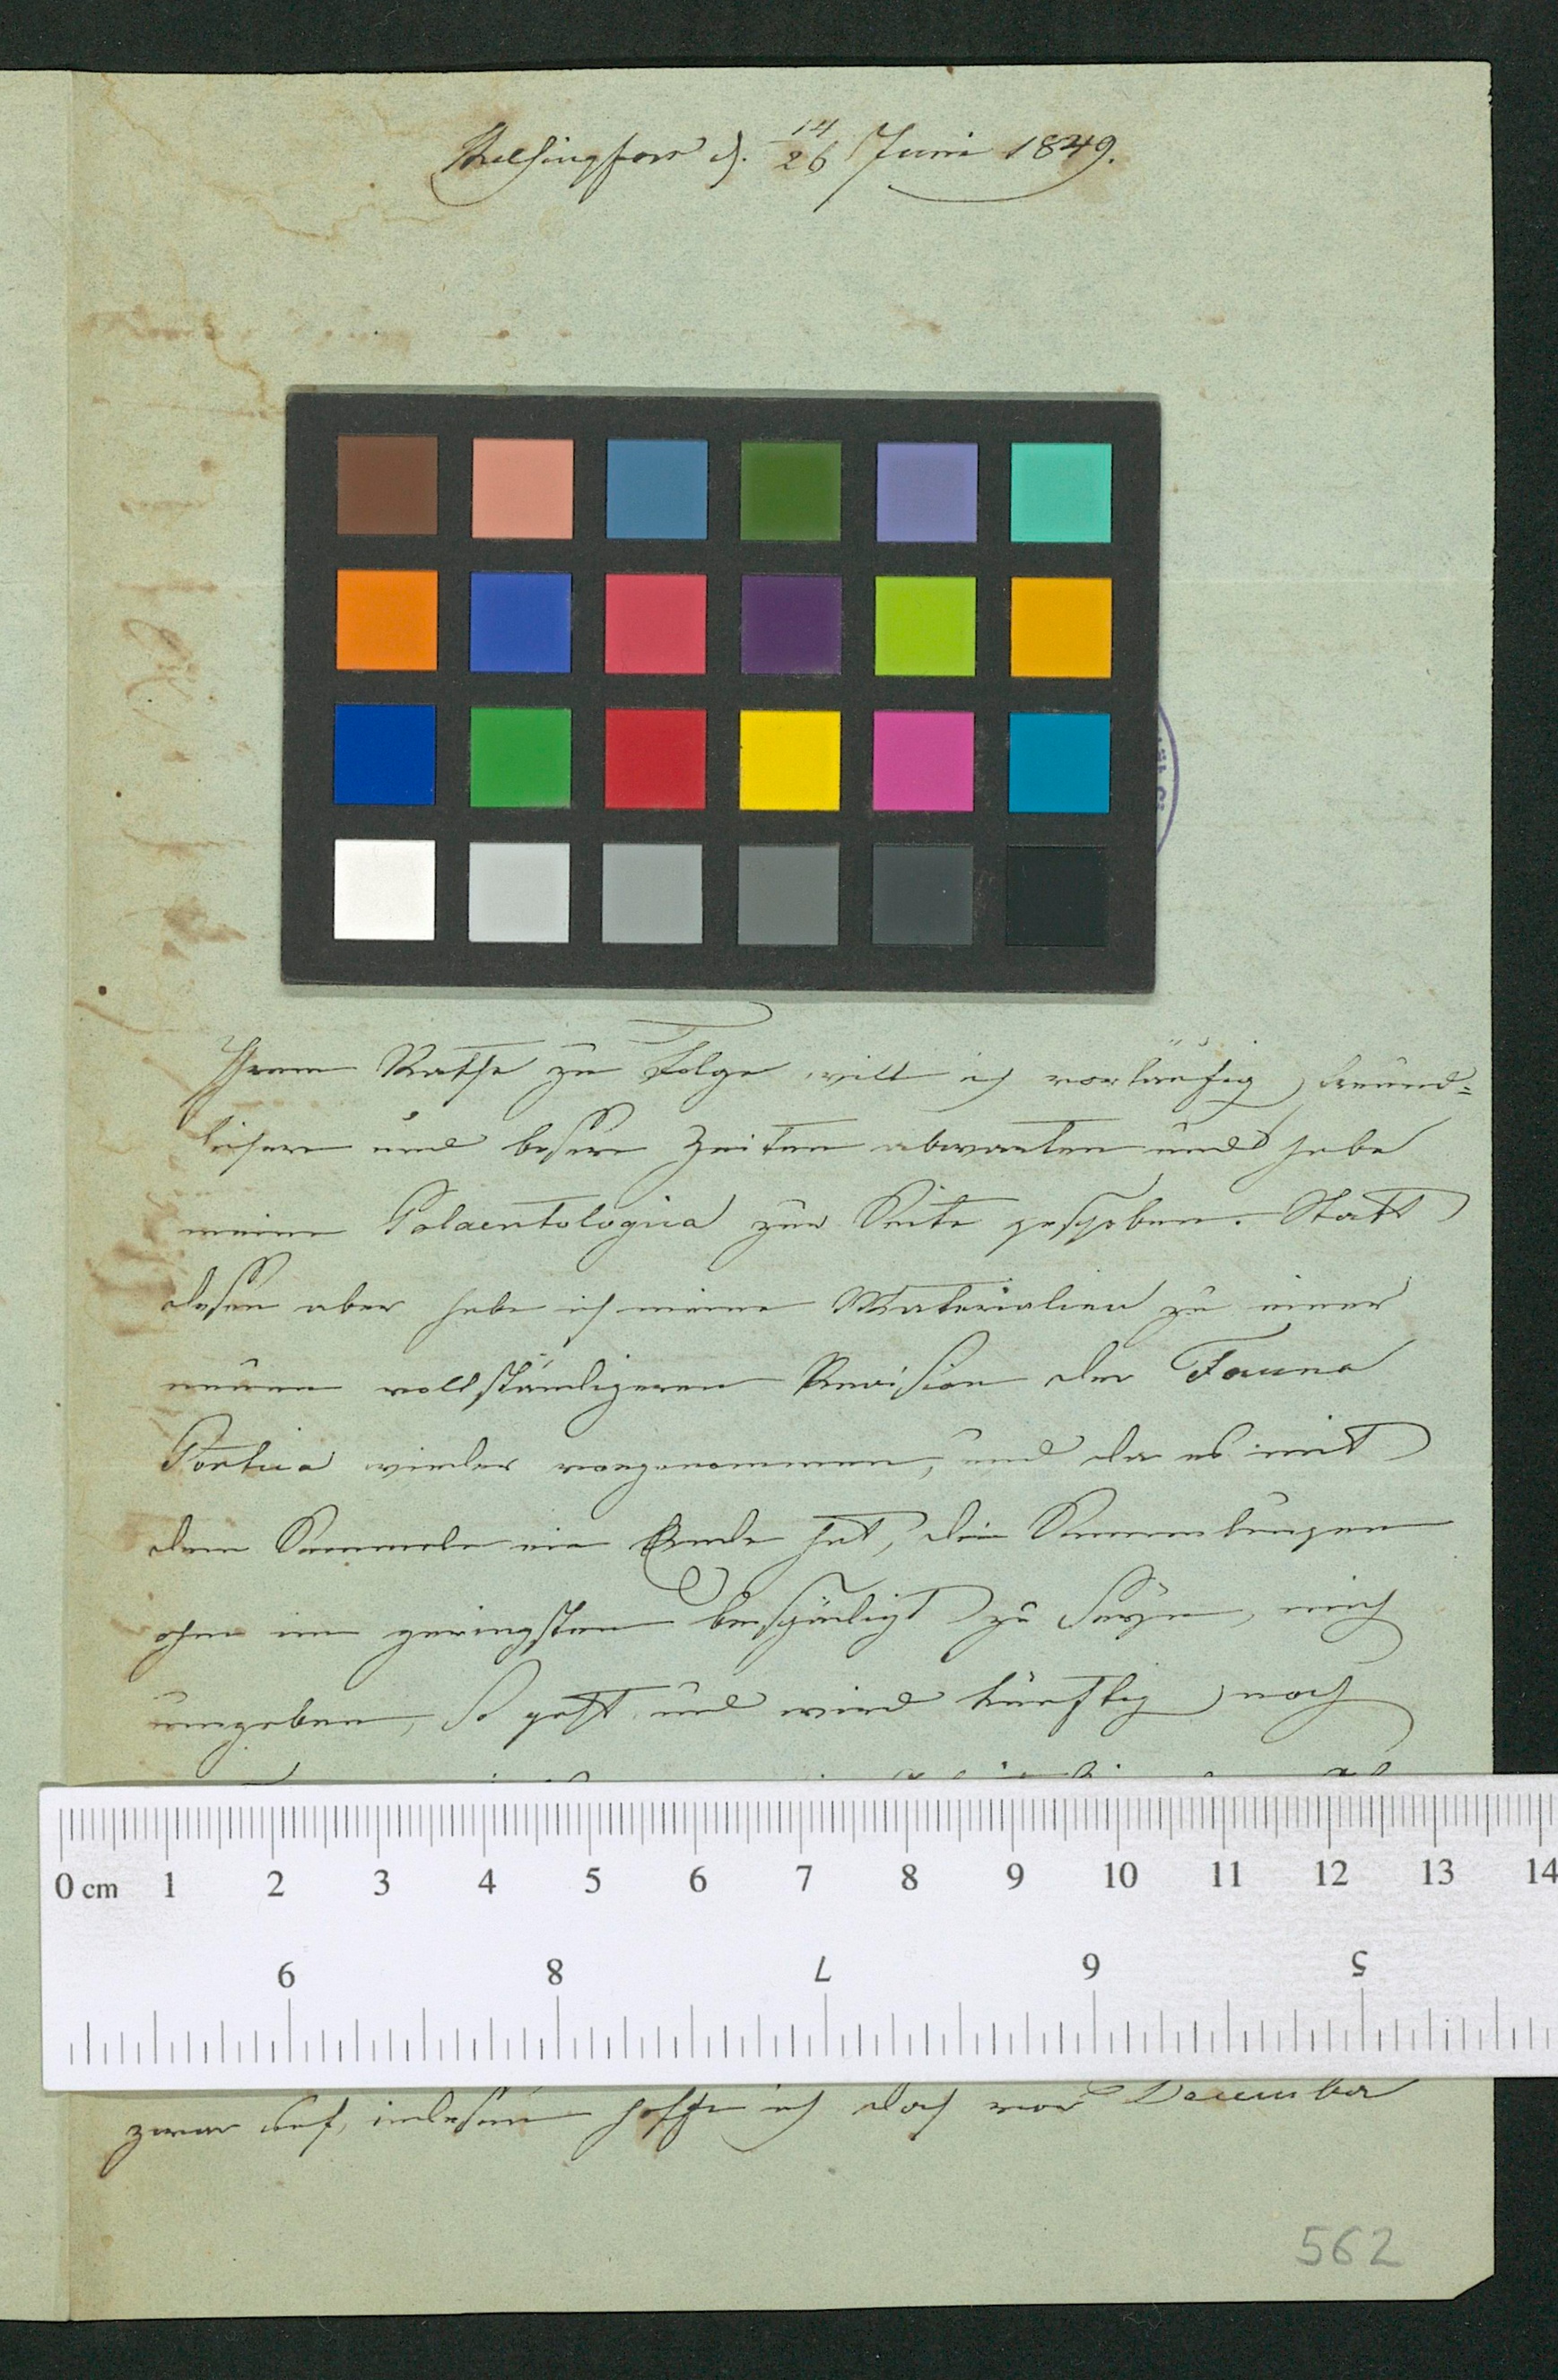 Helsingfors d. 14/26 Juni 1849.
Ihrem Rathe zu Folge will ich vorläufig freund=
lichere und bessere Zeiten abwarten und habe
meine Palaentologica zur Seite geschoben. Statt
dessen aber habe ich meine Materialien zu einer
neuen vollständigeren Revision der Fauna
wieder vorgenommen, und da es mit
dem Sammeln ein Ende hat, die Sammlungen
ohne im geringsten beschädigt zu seyn, mich
umgeben, so geht und wird künftig noch
0 cm 1 2 3 4 5 6 7 8 9 10 11 12 13 14
9 8 7 6 5
zwar auf, indessen hoffe ich doch vor December
562